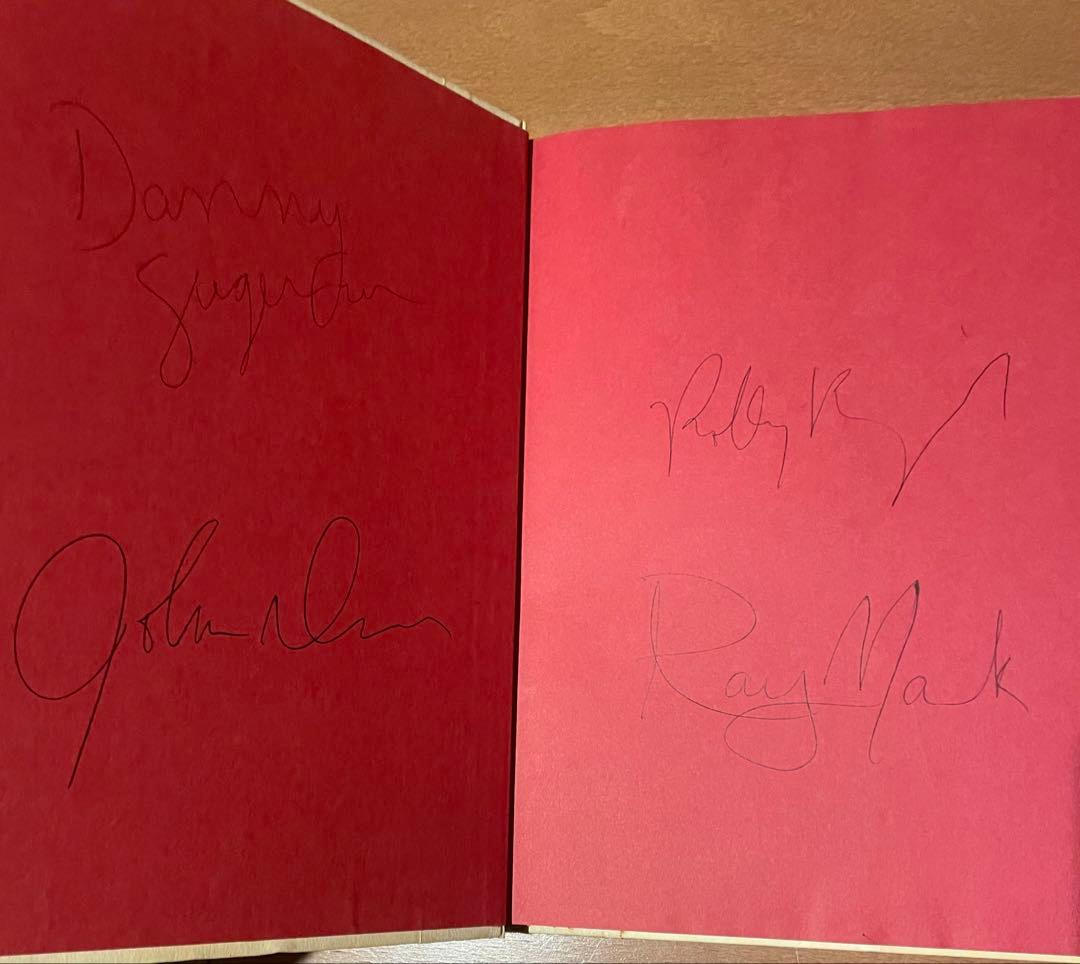 Danny
Sugerman
John Densmore
Robby Krieger
Ray Manzarek